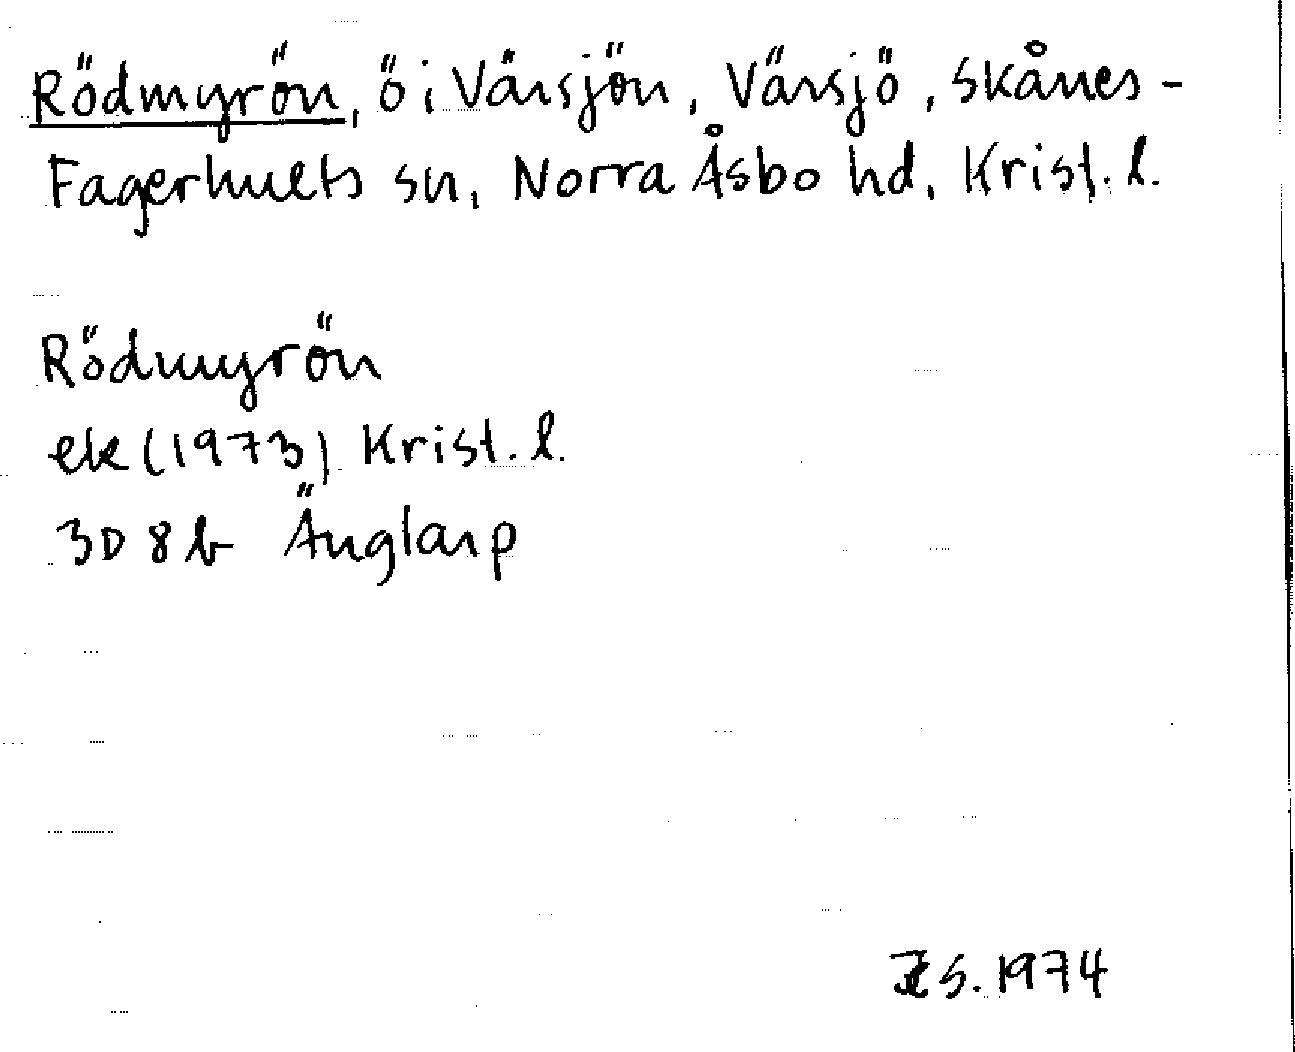 Rödmyrön, ö i Värsjön, Värsjö, Skånes-
Fagerhults sn, Norra Åsbo hd, Krist. l.
Rödmyrön
ek (1973) Krist. l.
3D 8b Änglarp
S. 1974